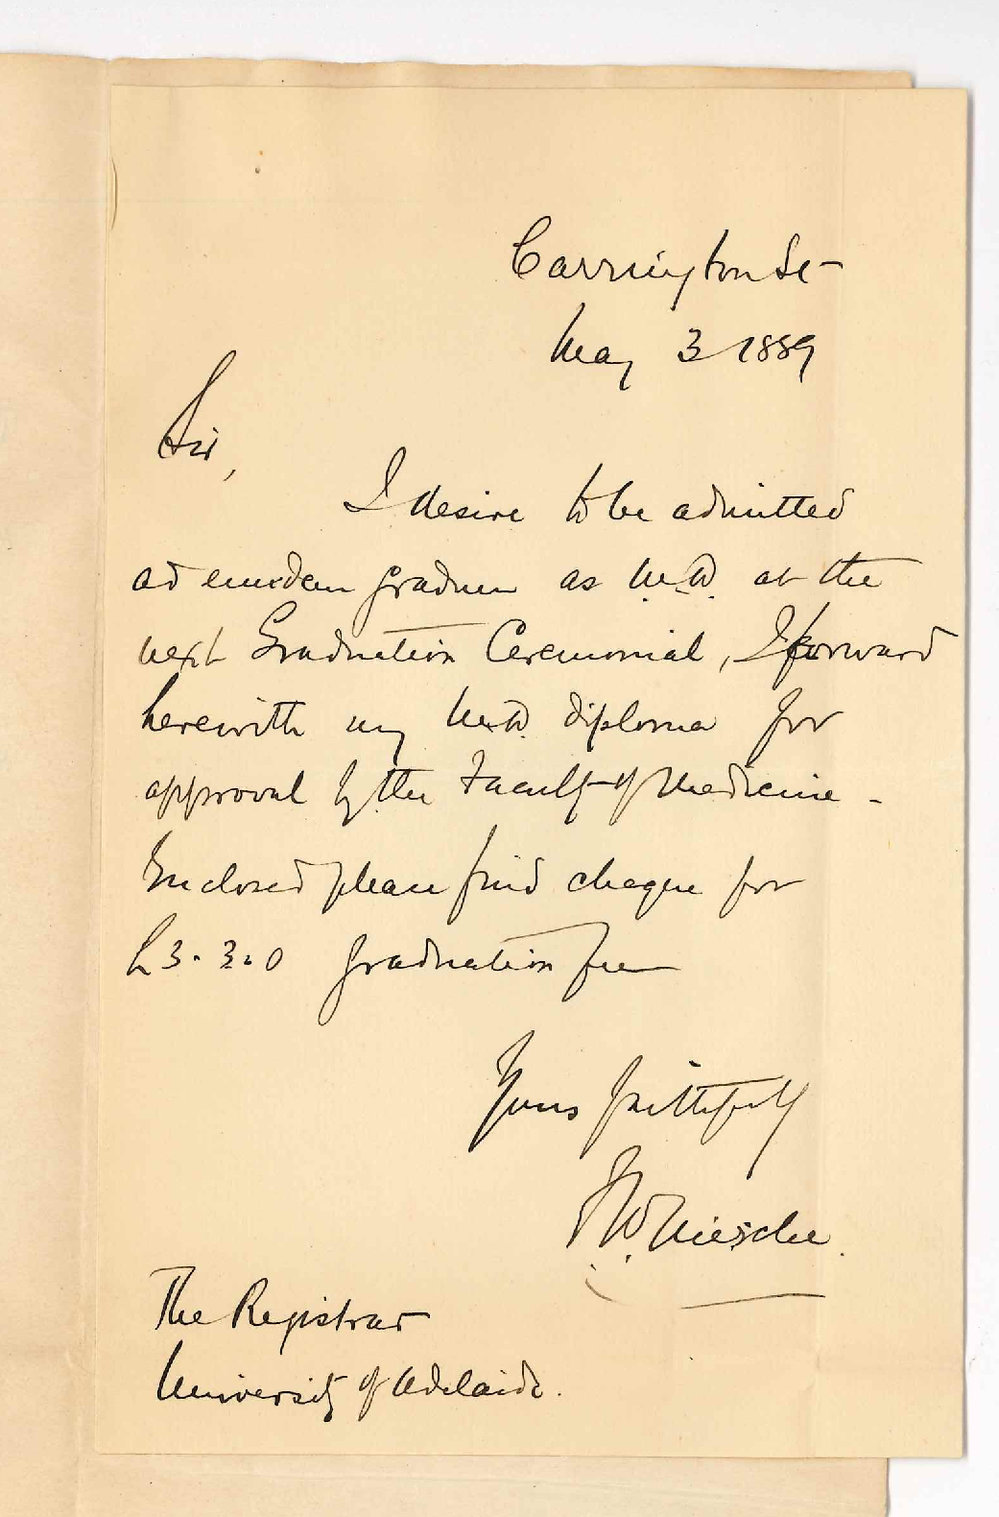 Carrington St
May 3 1889
Sir,
I desire to be admitted
ad eundem gradum as M.D. at the
next Graduation Ceremonial, I forward
herewith my M.D. diploma for
approval by the Faculty of Medicine -
Enclosed please find cheque for
£3.3.0 graduation fee
Yours faithfully
F W Niesche.
The Registrar
University of Adelaide.